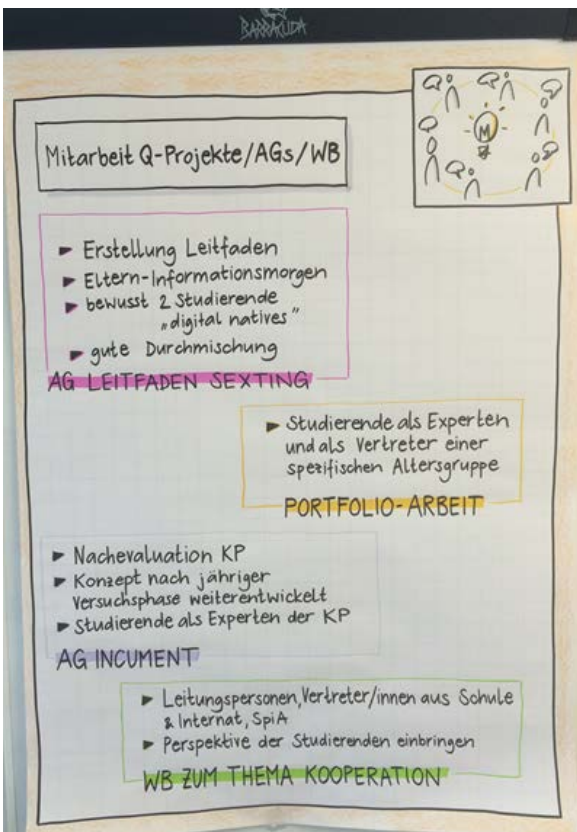 BARRACUDA
Mitarbeit Q-Projekte/AGs/WB
M
► Erstellung Leitfaden
► Eltern-Informationsmorgen
► bewusst 2 Studierende
„digital natives"
► gute Durchmischung
AG LEITFADEN SEXTING
► Studierende als Experten
und als Vertreter einer
spezifischen Altersgruppe
PORTFOLIO-ARBEIT
► Nachevaluation KP
► Konzept nach jähriger
Versuchsphase weiterentwickelt
► Studierende als Experten der KP
AG INCUMENT
► Leitungspersonen, Vertreter/innen aus Schule
& Internat, SpiA
► Perspektive der Studierenden einbringen
WB ZUM THEMA KOOPERATION